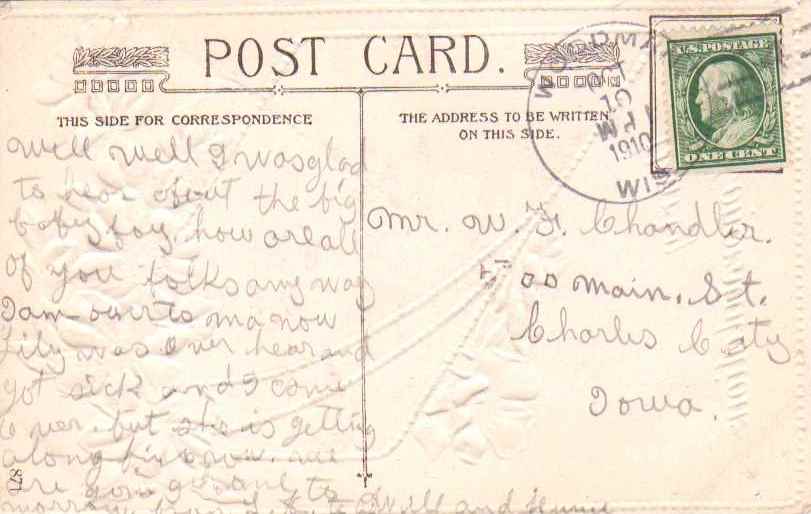 POST CARD.
THIS SIDE FOR CORRESPONDENCE
THE ADDRESS TO BE WRITTEN
ON THIS SIDE.
U.S. POSTAGE
ONE CENT
1 PM
1910
WIS
Well Well I was glad
to hear about the big
baby boy. how are all
of you folks any way
I am over to ma now
Lily was over hear and
got sick and I come
over. but she is getting
along fine now. we
are going home to
morrow from to Will and
Mr. W. F. Chandler.
00 Main. St.
Charles City
Iowa.